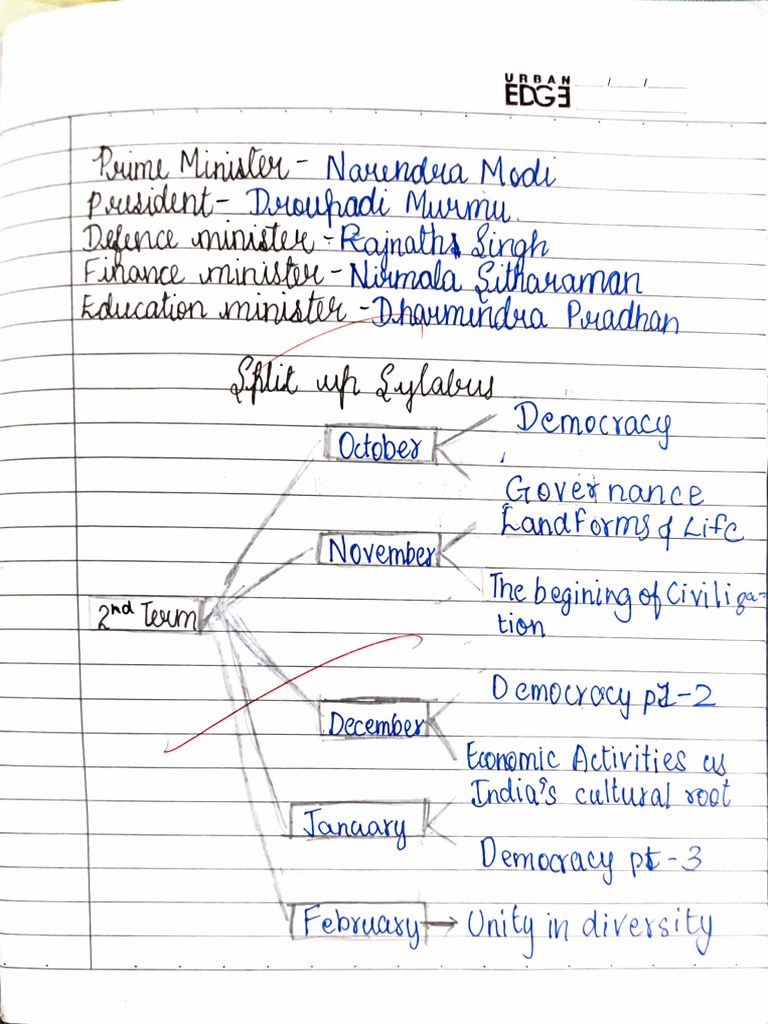 URBAN
EDGE / /
Prime Minister - Narendra Modi
President - Droupadi Murmu.
Defence minister - Rajnath Singh
Finance minister - Nirmala Sitharaman
Education minister - Dharmindra Pradhan
Split up Sylabus
October
Democracy
Governance
November
Landforms & Life
The begining of Civiliza-
tion
2nd Term
December
Democracy pt-2
Economic Activities us
January
India's cultural root
Democracy pt-3
February → Unity in diversity